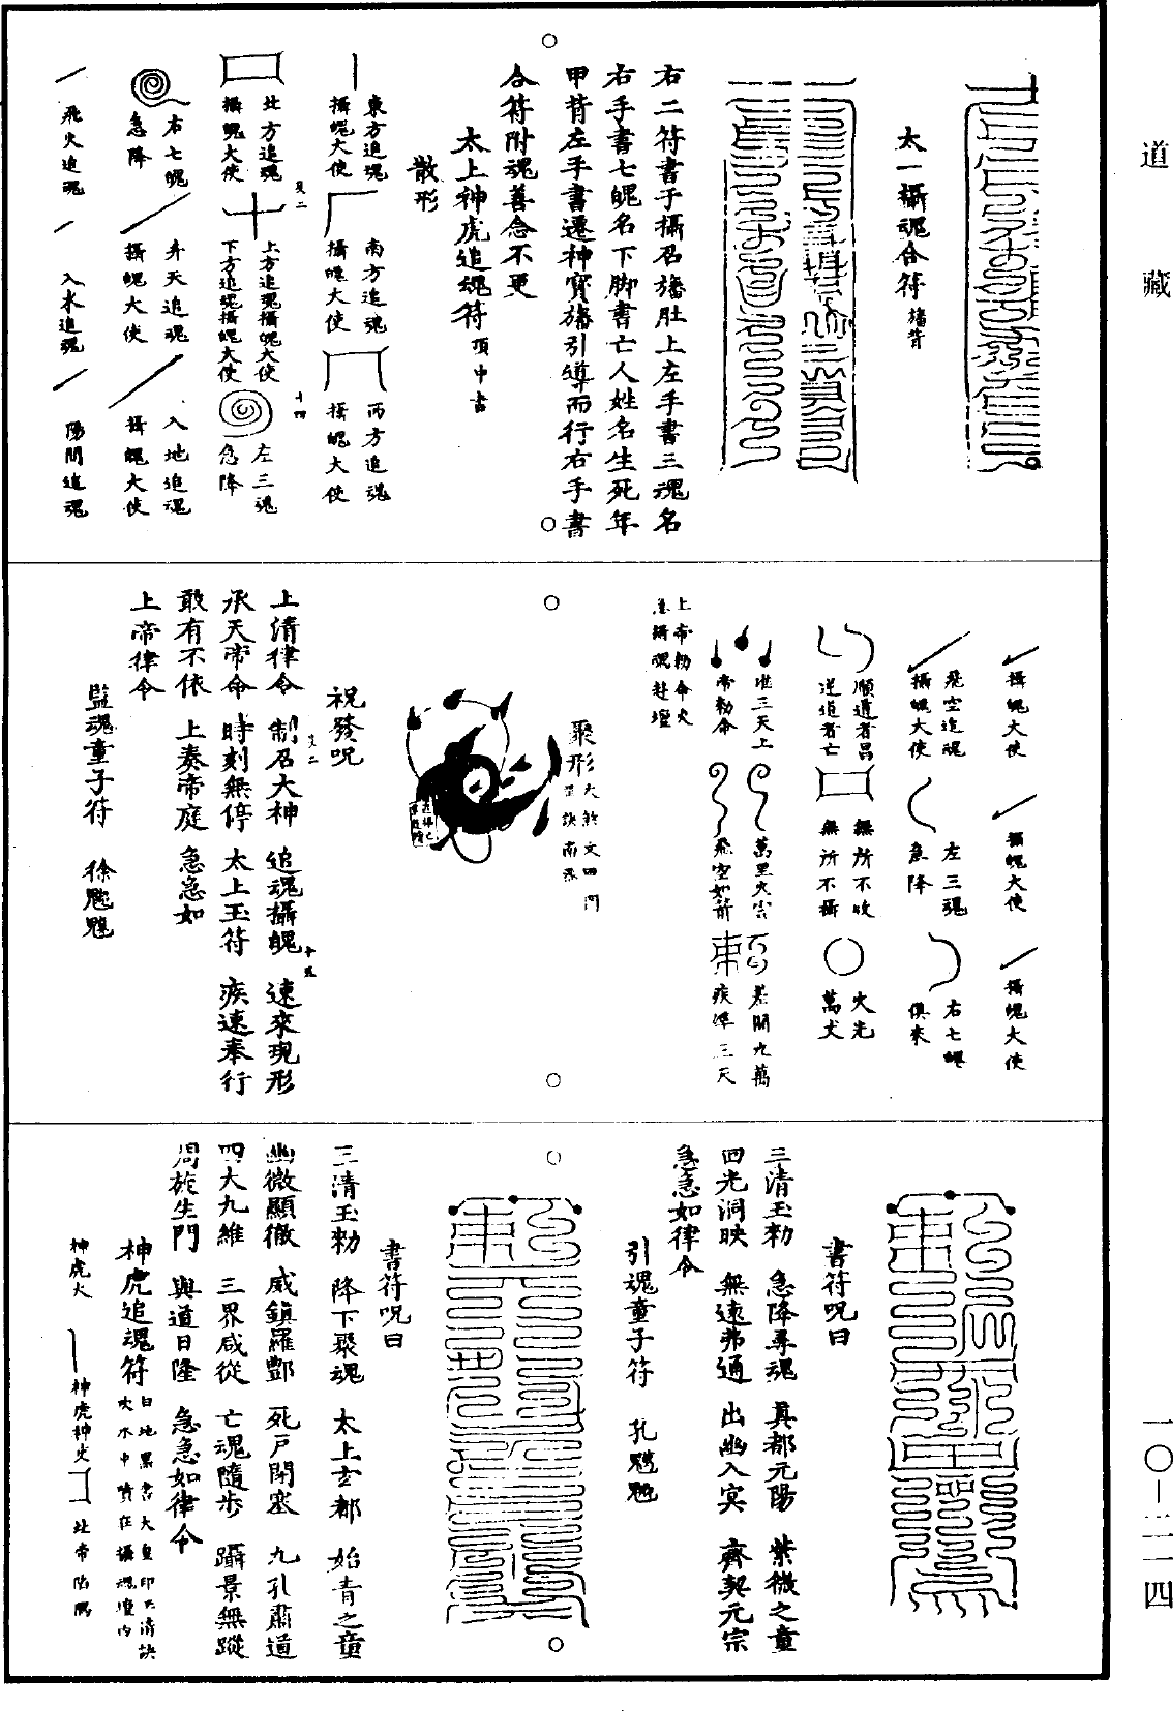 道藏
一〇—二一四
太一攝魂合符 旛背
右二符書于攝召旛肚上左手書三魂名
右手書七魄名下脚書亡人姓名生死年
甲背左手書遷神寶旛引導而行右手書
合符附魂善念不更
太上神虎追魂符 頂中書
散形
東方追魂
攝魄大使
南方追魂
攝魄大使
西方追魂
攝魄大使
北方追魂
攝魄大使
上方追魂攝魄大使
下方追魂攝魄大使
左三魂
急降
右七魄
急降
昇天追魂
攝魄大使
入地追魂
攝魄大使
飛火追魂
入水追魂
陽間追魂
攝魄大使
攝魄大使
攝魄大使
飛空追魂
攝魄大使
左三魂
急降
右七魄
俱來
順道者昌
逆道者亡
無所不收
無所不攝
火先
萬丈
三天上
帝勅命
萬里
飛空如箭
九萬
三天
上帝勅命火
急攝魂赴壇
聚形
祝發呪
上清律令 制召大神 追魂攝魄 速來現形
承天帝命 時刻無停 太上玉符 疾速奉行
敢有不依 上奏帝庭 急急如
上帝律令
監魂童子符 徐
書符呪曰
三清玉勅 急降尋魂 真都元陽 紫微之童
四光洞映 無遠弗通 出幽入冥 齊契元宗
急急如律令
引魂童子符 孔
書符呪曰
三清玉勅 降下聚魂 太上玄都 始青之童
幽微顯徹 威鎮羅酆 死戶閉塞 九孔肅道
四大九維 三界咸從 亡魂隨步 躡景無蹤
周旋生門 與道日隆 急急如律令
神虎追魂符 白地黑書大皇印上清訣
吹水中噴在攝魂壇內
神虎大
神虎神吏
北帝